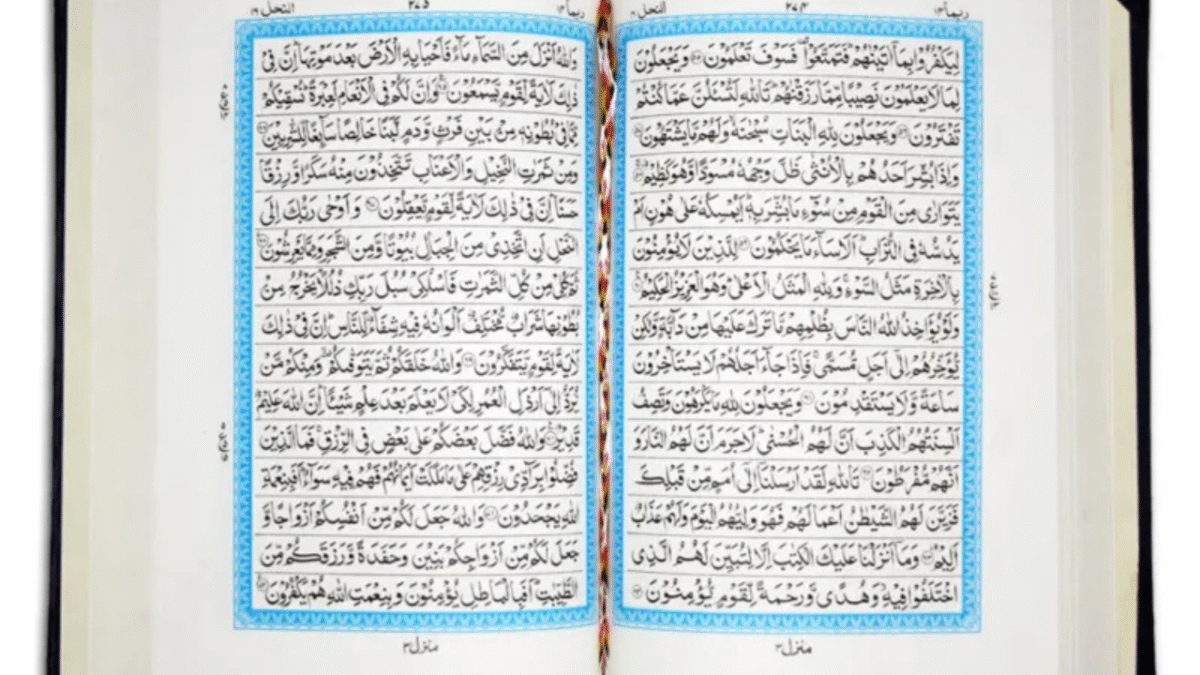 ربما ١٤
٢٧٤
النحل ١٦
لِيَكْفُرُوا بِمَا اٰتَيْنٰهُمْ فَتَمَتَّعُوْا فَسَوْفَ تَعْلَمُوْنَ ۝٥٥ وَيَجْعَلُوْنَ
لِمَا لَا يَعْلَمُوْنَ نَصِيْبًا مِّمَّا رَزَقْنٰهُمْ تَاللّٰهِ لَتُسْـَٔلُنَّ عَمَّا كُنْتُمْ
تَفْتَرُوْنَ ۝٥٦ وَيَجْعَلُوْنَ لِلّٰهِ الْبَنٰتِ سُبْحٰنَهٗ وَلَهُمْ مَّا يَشْتَهُوْنَ ۝٥٧
وَاِذَا بُشِّرَ اَحَدُهُمْ بِالْاُنْثٰى ظَلَّ وَجْهُهٗ مُسْوَدًّا وَّهُوَ كَظِيْمٌ ۝٥٨
يَتَوَارٰى مِنَ الْقَوْمِ مِنْ سُوْٓءِ مَا بُشِّرَ بِهٖ اَيُمْسِكُهٗ عَلٰى هُوْنٍ اَمْ
يَدُسُّهٗ فِى التُّرَابِ اَلَا سَآءَ مَا يَحْكُمُوْنَ ۝٥٩ لِلَّذِيْنَ لَا يُؤْمِنُوْنَ
بِالْاٰخِرَةِ مَثَلُ السَّوْءِ وَلِلّٰهِ الْمَثَلُ الْاَعْلٰى وَهُوَ الْعَزِيْزُ الْحَكِيْمُ ۝٦٠
وَلَوْ يُؤَاخِذُ اللّٰهُ النَّاسَ بِظُلْمِهِمْ مَّا تَرَكَ عَلَيْهَا مِنْ دَآبَّةٍ وَّلٰكِنْ
يُّؤَخِّرُهُمْ اِلٰٓى اَجَلٍ مُّسَمًّى فَاِذَا جَآءَ اَجَلُهُمْ لَا يَسْتَاْخِرُوْنَ
سَاعَةً وَّلَا يَسْتَقْدِمُوْنَ ۝٦١ وَيَجْعَلُوْنَ لِلّٰهِ مَا يَكْرَهُوْنَ وَتَصِفُ
اَلْسِنَتُهُمُ الْكَذِبَ اَنَّ لَهُمُ الْحُسْنٰى لَا جَرَمَ اَنَّ لَهُمُ النَّارَ وَ
اَنَّهُمْ مُّفْرَطُوْنَ ۝٦٢ تَاللّٰهِ لَقَدْ اَرْسَلْنَآ اِلٰٓى اُمَمٍ مِّنْ قَبْلِكَ
فَزَيَّنَ لَهُمُ الشَّيْطٰنُ اَعْمَالَهُمْ فَهُوَ وَلِيُّهُمُ الْيَوْمَ وَلَهُمْ عَذَابٌ
اَلِيْمٌ ۝٦٣ وَمَآ اَنْزَلْنَا عَلَيْكَ الْكِتٰبَ اِلَّا لِتُبَيِّنَ لَهُمُ الَّذِى
اخْتَلَفُوْا فِيْهِ وَهُدًى وَّرَحْمَةً لِّقَوْمٍ يُّؤْمِنُوْنَ ۝٦٤
منزل ٣
ربما ١٤
٢٧٥
النحل ١٦
وَاللّٰهُ اَنْزَلَ مِنَ السَّمَآءِ مَآءً فَاَحْيَا بِهِ الْاَرْضَ بَعْدَ مَوْتِهَا اِنَّ فِىْ
ذٰلِكَ لَاٰيَةً لِّقَوْمٍ يَّسْمَعُوْنَ ۝٦٥ وَاِنَّ لَكُمْ فِى الْاَنْعَامِ لَعِبْرَةً نُسْقِيْكُمْ
مِّمَّا فِىْ بُطُوْنِهٖ مِنْۢ بَيْنِ فَرْثٍ وَّدَمٍ لَّبَنًا خَالِصًا سَآئِغًا لِّلشّٰرِبِيْنَ ۝٦٦
وَمِنْ ثَمَرٰتِ النَّخِيْلِ وَالْاَعْنَابِ تَتَّخِذُوْنَ مِنْهُ سَكَرًا وَّرِزْقًا
حَسَنًا اِنَّ فِىْ ذٰلِكَ لَاٰيَةً لِّقَوْمٍ يَّعْقِلُوْنَ ۝٦٧ وَاَوْحٰى رَبُّكَ اِلَى
النَّحْلِ اَنِ اتَّخِذِىْ مِنَ الْجِبَالِ بُيُوْتًا وَّمِنَ الشَّجَرِ وَمِمَّا يَعْرِشُوْنَ ۝٦٨
ثُمَّ كُلِىْ مِنْ كُلِّ الثَّمَرٰتِ فَاسْلُكِىْ سُبُلَ رَبِّكِ ذُلُلًا يَخْرُجُ مِنْۢ
بُطُوْنِهَا شَرَابٌ مُّخْتَلِفٌ اَلْوَانُهٗ فِيْهِ شِفَآءٌ لِّلنَّاسِ اِنَّ فِىْ ذٰلِكَ
لَاٰيَةً لِّقَوْمٍ يَّتَفَكَّرُوْنَ ۝٦٩ وَاللّٰهُ خَلَقَكُمْ ثُمَّ يَتَوَفّٰىكُمْ وَمِنْكُمْ مَّنْ
يُّرَدُّ اِلٰٓى اَرْذَلِ الْعُمُرِ لِكَىْ لَا يَعْلَمَ بَعْدَ عِلْمٍ شَيْـًٔا اِنَّ اللّٰهَ عَلِيْمٌ
قَدِيْرٌ ۝٧٠ وَاللّٰهُ فَضَّلَ بَعْضَكُمْ عَلٰى بَعْضٍ فِى الرِّزْقِ فَمَا الَّذِيْنَ
فُضِّلُوْا بِرَآدِّىْ رِزْقِهِمْ عَلٰى مَا مَلَكَتْ اَيْمَانُهُمْ فَهُمْ فِيْهِ سَوَآءٌ اَفَبِنِعْمَةِ
اللّٰهِ يَجْحَدُوْنَ ۝٧١ وَاللّٰهُ جَعَلَ لَكُمْ مِّنْ اَنْفُسِكُمْ اَزْوَاجًا وَّ
جَعَلَ لَكُمْ مِّنْ اَزْوَاجِكُمْ بَنِيْنَ وَحَفَدَةً وَّرَزَقَكُمْ مِّنَ
الطَّيِّبٰتِ اَفَبِالْبَاطِلِ يُؤْمِنُوْنَ وَبِنِعْمَتِ اللّٰهِ هُمْ يَكْفُرُوْنَ ۝٧٢
منزل ٣